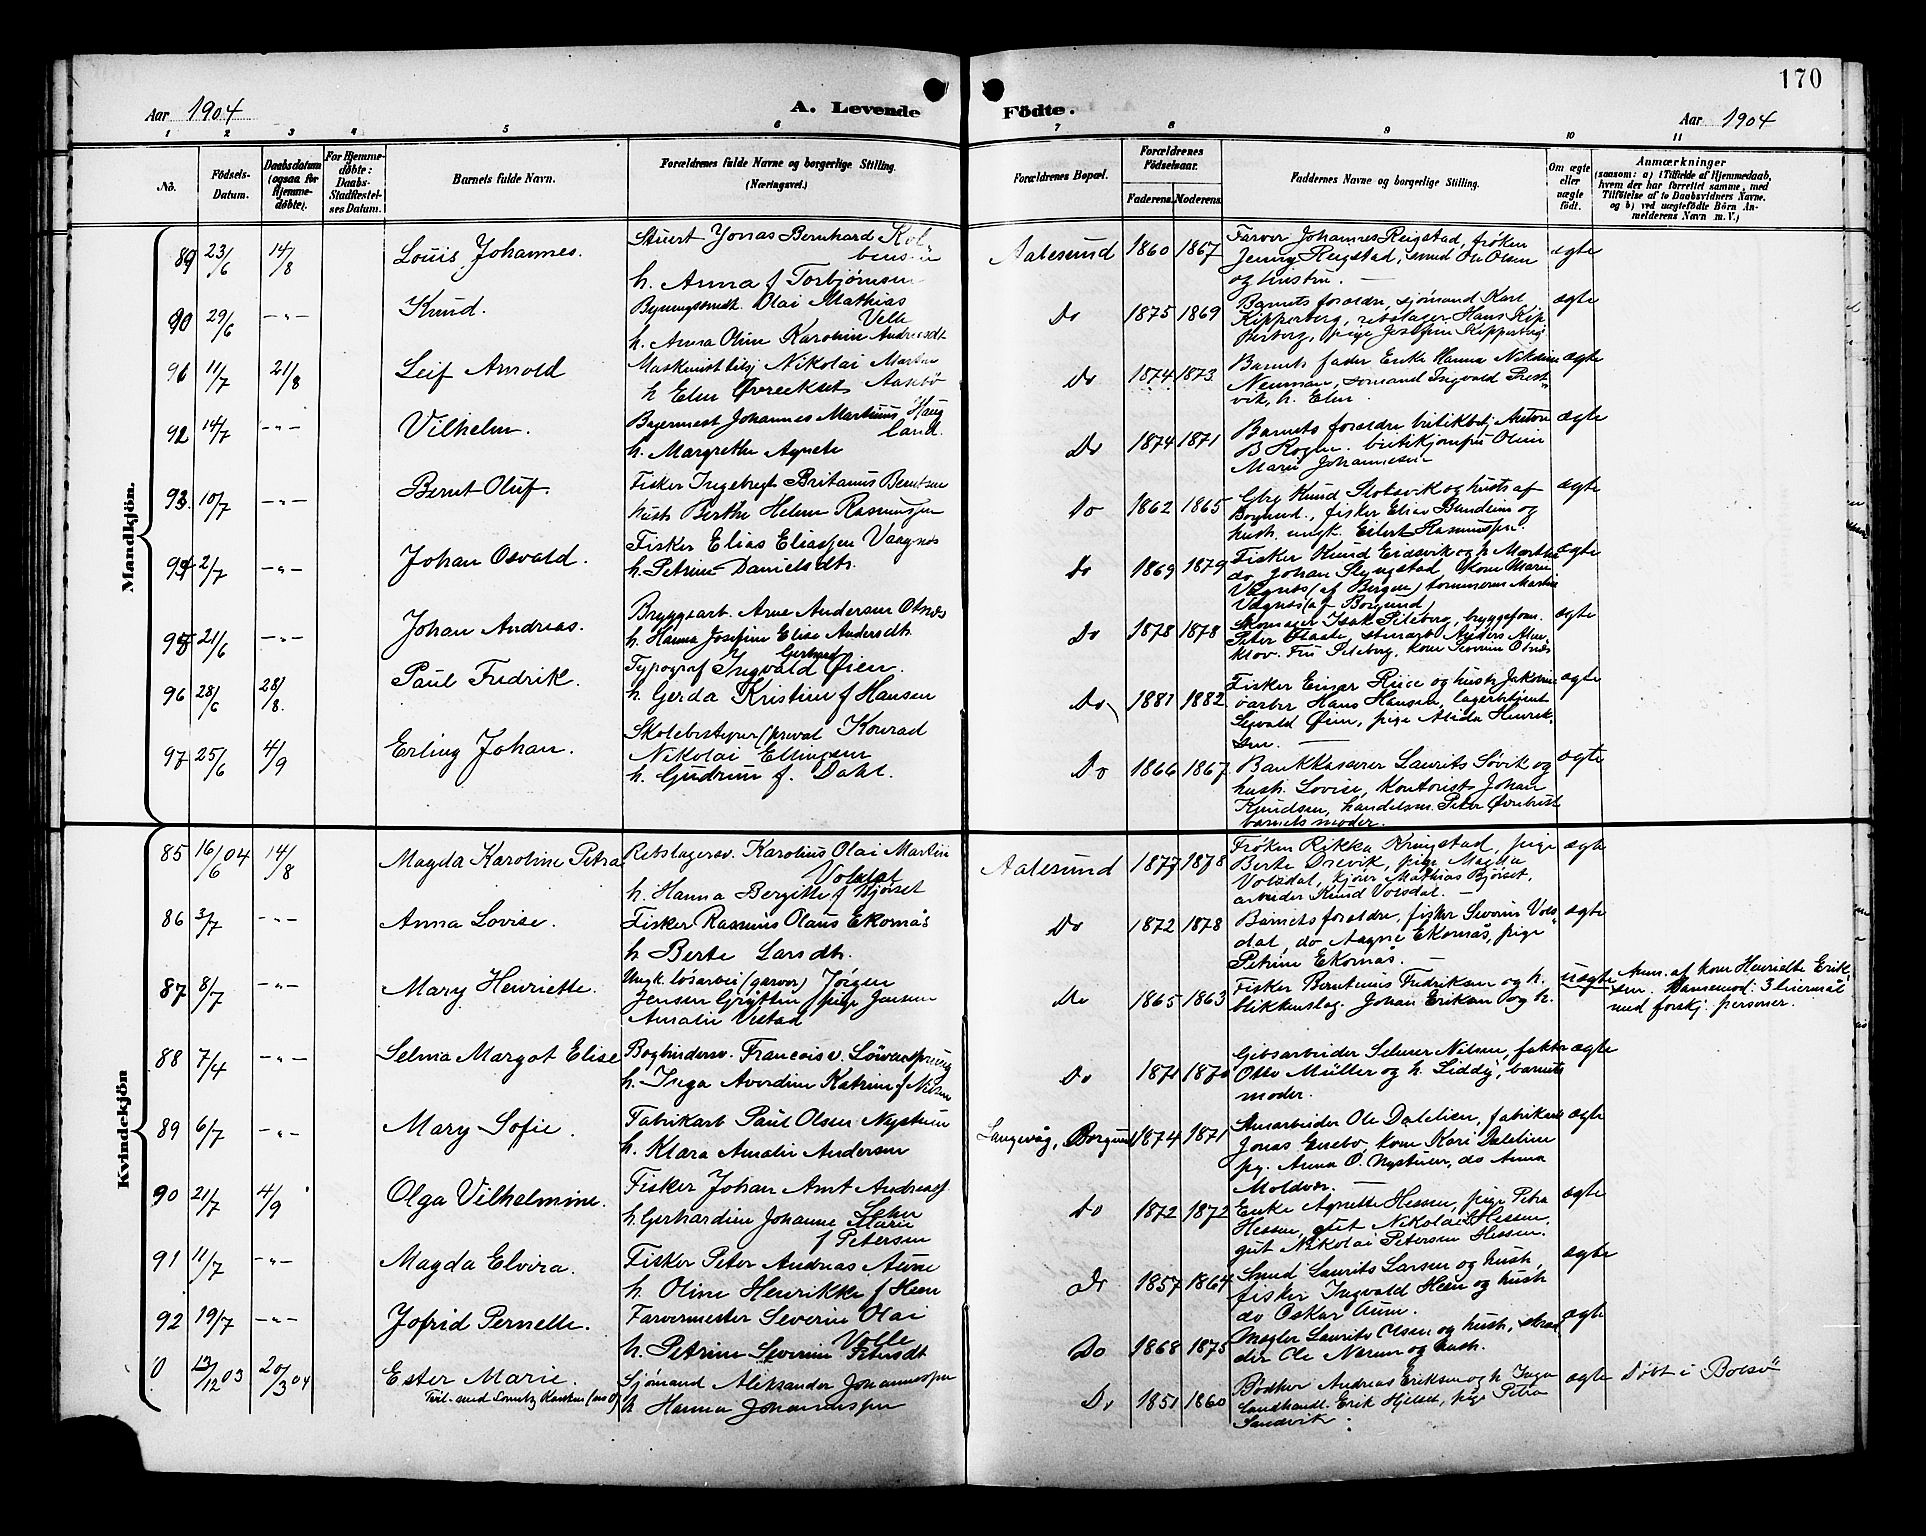 170
Aar 1904
A. Levende
Födte.
Aar 1904
1 2 3 4 5 6 7 8 9 10 11
No.
Födsels-Datum.
Daabsdatum (ogsaa for Hjemmedøbte).
For Hjemmedøbte: Daabs-Stadfæstelses Datum.
Barnets fulde Navn.
Forældrenes fulde Navne og borgerlige Stilling.
(Næringsvei.)
Forældrenes Bopæl.
Forældrenes Födselsaar.
Faderens. Moderens.
Faddernes Navne og borgerlige Stilling.
Om ægte eller uægte født.
Anmærkninger
(saasom: a) i Tilfælde af Hjemmedaab,
hvem der har forrettet samme, med
Tilføielse af to Daabsvidners Navne.
og b) ved uægtefødte Börn An-
melderens Navn m. V.)
Mandkjön.
89 23/6 14/8 Louis Johannes. Stuert Jonas Bernhard
h. Anna f Torbjørnsen
Aalesund 1860 1867 Farver Johannes Reigstad, frøken
Jenny Reigstad, smed Ole Olsen
og hustru. —
ægte
90 29/6 —"— Knud. Olai Mathias
Velle
h. Anna Oline Karoline Andreasdt
Do 1875 1869 Barnets forældre, sjømand Karl
Kipperberg, rebslager Hans Kip
perberg, pige Josefin Kipperberg
ægte
91 11/7 21/8 Leif Arnold Maskinist Nikolai Martin
h Elen Aasebø
Do 1874 1873 Barnets fader Enke Hanna
Neuman, sømand Ingvald Brest-
vik, h. Elen.
ægte
92 14/7 —"— Vilhelm. Johannes Martinus Haug
land.
h. Margrethe Agnete
Do 1874 1871 Barnets forældre Anton
B Rogne. Oline
Marie Johannesen
ægte
93 10/7 —"— Bernt Oluf. Fisker Ingebregt Britanus Berntsen
hust. Berthe Helene Rasmussen
Do 1862 1865 Gbr Knud Slotsvik og hustr af
Borgund., fisker Elias
hustr. ungk. Eilert Rasmussen.
ægte
94 2/7 —"— Johan Osvald. Fisker Elias Eliassen Vaagnes
h. Petrine Danielsdtr.
Do 1869 1879 Fisker Knud Eidsvik og h Marthe
do Johan Slyngstad, kone Marie
Vågnes (af Bergen) tømmerm Martin
Vågnes (af Borgund)
ægte
95 21/6 —"— Johan Andreas. Bryggearb. Arne Andersen Otnes
h. Hanna Josefine Elise Andersdtr.
Do 1878 1878 Skomager Isak Pileberg, bryggeform.
Peter Flaate, stenarb Anders Alm-
klov. Fru Pileberg. kone Otnes
ægte
96 28/6 28/8. Paul Fredrik. Typograf Ingvald Gerhard Øien.
h Gerda Kristine f Hansen
Do 1881 1882 Fisker Einar Riise og hustr Jakobine
varber Hans Hansen, lagerbetjent
Sigvald Øien, pige Alida Henrik-
sen. —
ægte
97 25/6 4/9 Erling Johan. Skolebestyrer (privat Konrad
Nikolai Ellingsen
h. Gudrun f. Dahl.
Do 1866 1867 Bankkasserer Laurits Søvik og
hustr. Lovise, kontorist Johan
Knudsen, handelsm. Peter Øvrebust
barnets moder.
ægte
Kvindekjön
85 16/6 04 14/8 Magda Karoline Petra Rebslagersv. Karolius Olai Martin
Volsdal
h. Hanna Bergitte f Bjørset
Aalesund 1877 1878 Frøken Rikka Kringstad, pige
Berte Drevik, pige Magda
Volsdal, kjører Mathias Bjørset,
arbeider Knud Volsdal. —
ægte
86 3/7 —"— Anna Lovise. Fisker Rasmus Olaus Ekornås
h Berte Larsdtr.
Do 1872 1878 Barnets forældre, fisker Severin Vols-
dal, do Aagne Ekornås, pige
Petrine Ekornås. —
ægte
87 8/7 —"— Mary Henriette. Ungk. løsarbei (garver) Jørgen
Jensen Gryttin, pige Jensine
Amalie Vestad
Do 1865 1863 Fisker Berntinus Fredriksen og h.
blikkenslag. Johan Eriksen og h.
uægte
Anm. af kone Henriette Erik-
sen. 3 leiermål
med forskj. personer.
88 7/4 —"— Selma Margot Elise Bogbindersv. Francois v. Löwensprung
h. Inga Averdine Katrine f Nielsen
Do 1871 1870 Gibsarbeider Selmer Nilsen, faktor
Otto Müller og h. Liddy, barnets
moder.
ægte
89 6/7 —"— Mary Sofie. Fabrikarb Paul Olsen Nystuen
h. Klara Amalie Andersen
Langevåg, Borgund 1874 1871 Stenarbeider Ole Dalelien, fabrikarb
Jonas Enebo, kone Kari Dalelien
pg. Anna O. Nystuen, do Anna
Moldvær. —
ægte
90 21/7 4/9 Olga Vilhelmine. Fisker Johan Arnt
h. Gerhardine Johanne Marie
f Petersen
Do 1872 1872 Enke Agnette Hessen, pige Petra
Hessen, gut Nikolai Hessen,
gut Nikolai Petersen Hessen.
ægte
91 11/7 —"— Magda Elvira. Fisker Peter Andreas Aune
h. Oline Henrikke f Heen
Do 1857 1864 Smed Laurits Larsen og hustr,
fisker Ingvald Heen og hustr
do Oskar Aune.
ægte
92 19/7 —"— Jofrid Pernelle. Farvermester Severin Olai
Velle
h. Petrine Severine Petersdt
Do 1868 1875 Mægler Laurits Olsen og hustr,
Ole Nerem og hustr.
ægte
0 13/12 03 20/3 04 Ester Marie. Sjømand Aleksander Johannessen
h Hanna Johannessen
Do 1851 1860 Bødker Andreas Eriksen og h Inga
Landhandl. Erik Hjelset, pige Petra
Sandvik.
ægte Døbt i Bolsø